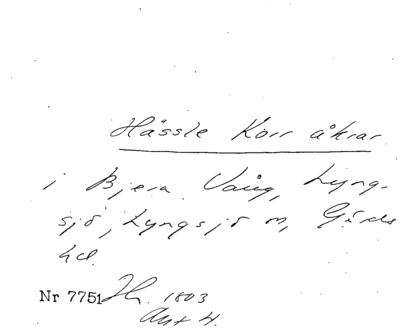 Hässle Korr åkrar
i Bjera Vång, Lyng-
sjö, Lyngsjö sn, Gärds
hd.
Nr 7751 Jh. 1803
Akt 4.